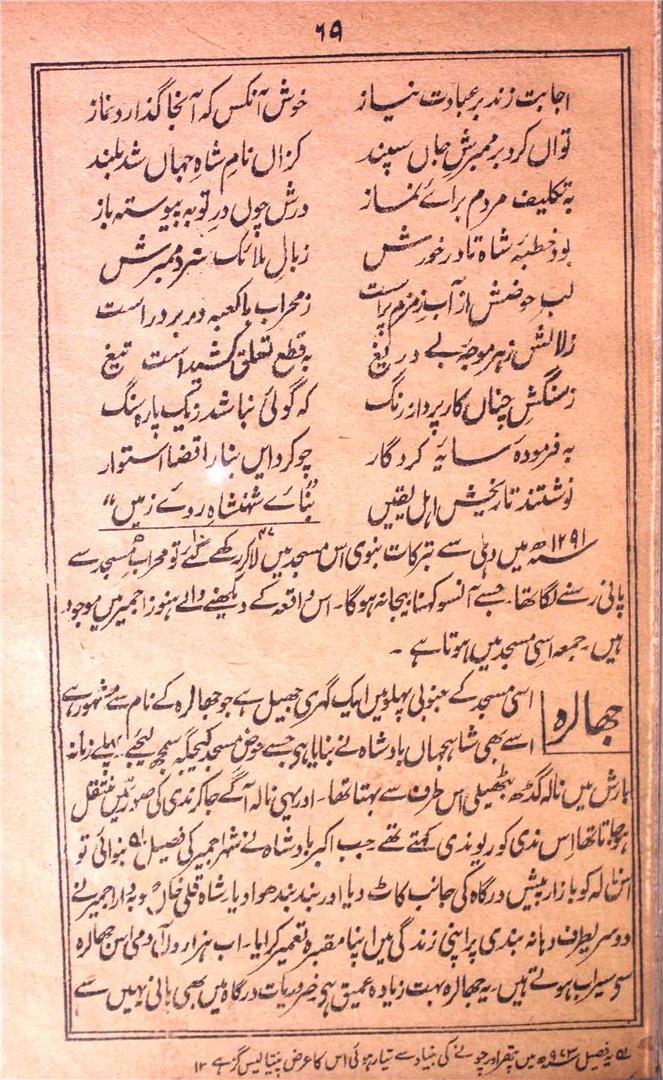 ۶۹
اجابت زند بر عبادت نیاز خوش آنکس کہ آنجا گذارد نماز
تواں کرد بر ممبرش جاں سپند کزاں نامِ شاہِ جہاں شد بلند
بہ تکلیف مردم برائے نماز درش چوں درِ توبہ پیوستہ باز
بود خطبۂ شاہ تا در خورش زبالِ ملائک سزد ممبرش
لبِ حوضش از آبِ زمزم پر است ز محراب با کعبہ در بر در است
زلالش ز ہر موجۂ بے دریغ بہ قطع تعلق کشید است تیغ
ز سنگش چناں کار پرواز رنگ کہ گوئی نباشد ز یک پارہ سنگ
بہ فرمودۂ سایۂ کردگار چو کرد ایں بنا را قضا استوار
نوشتند تاریخش اہل یقیں ”بنائے شہنشاہ روے زمیں“
۱۲۹۱ھ میں دہلی سے تبرکات نبوی اس مسجد میں لاکر رکھے گئے تو محراب مسجد سے
پانی رسنے لگا تھا۔ جسے آنسو کہنا بیجا نہ ہوگا۔ اس واقعہ کے دیکھنے والے ہنوز اجمیر میں موجود
ہیں۔ جمعہ اسی مسجد میں ہوتا ہے۔
جھالرہ
اسی مسجد کے جنوبی پہلو میں ایک گہری جھیل ہے جو جھالرہ کے نام سے مشہور ہے
اسے بھی شاہجہاں بادشاہ نے بنایا ہے جسے حوض مسجد کی جگہ سمجھ لیجئے۔ پہلے زمانہ
بارش میں نالہ گڈھ بٹھیلی اس طرف سے بہتا تھا۔ اور یہی نالہ آگے جاکر ندی کی صورت میں منتقل
ہوجاتا تھا اس ندی کو ریوندی کہتے تھے۔ جب اکبر بادشاہ نے شہر اجمیر کی فصیل ۵۱ بنوائی تو
اس نالہ کو بازار پیش درگاہ کی جانب کاٹ دیا اور بند بندھوا دیا۔ شاہ قلی خاں صوبہ دار اجمیر نے
دوسری طرف دہانہ بندی پر اپنی زندگی میں اپنا مقبرہ تعمیر کرایا۔ اب ہزاروں آدمی اس جھالرہ
سے سیراب ہوتے ہیں۔ یہ جھالرہ بہت زیادہ عمیق ہے ضروریات درگاہ میں بھی پانی یہیں سے
۵۱ یہ فصیل ۹۷۳ھ میں پتھر اور چونے کی بنیاد سے تیار ہوئی اس کا عرض پینتالیس گز ہے ۱۲